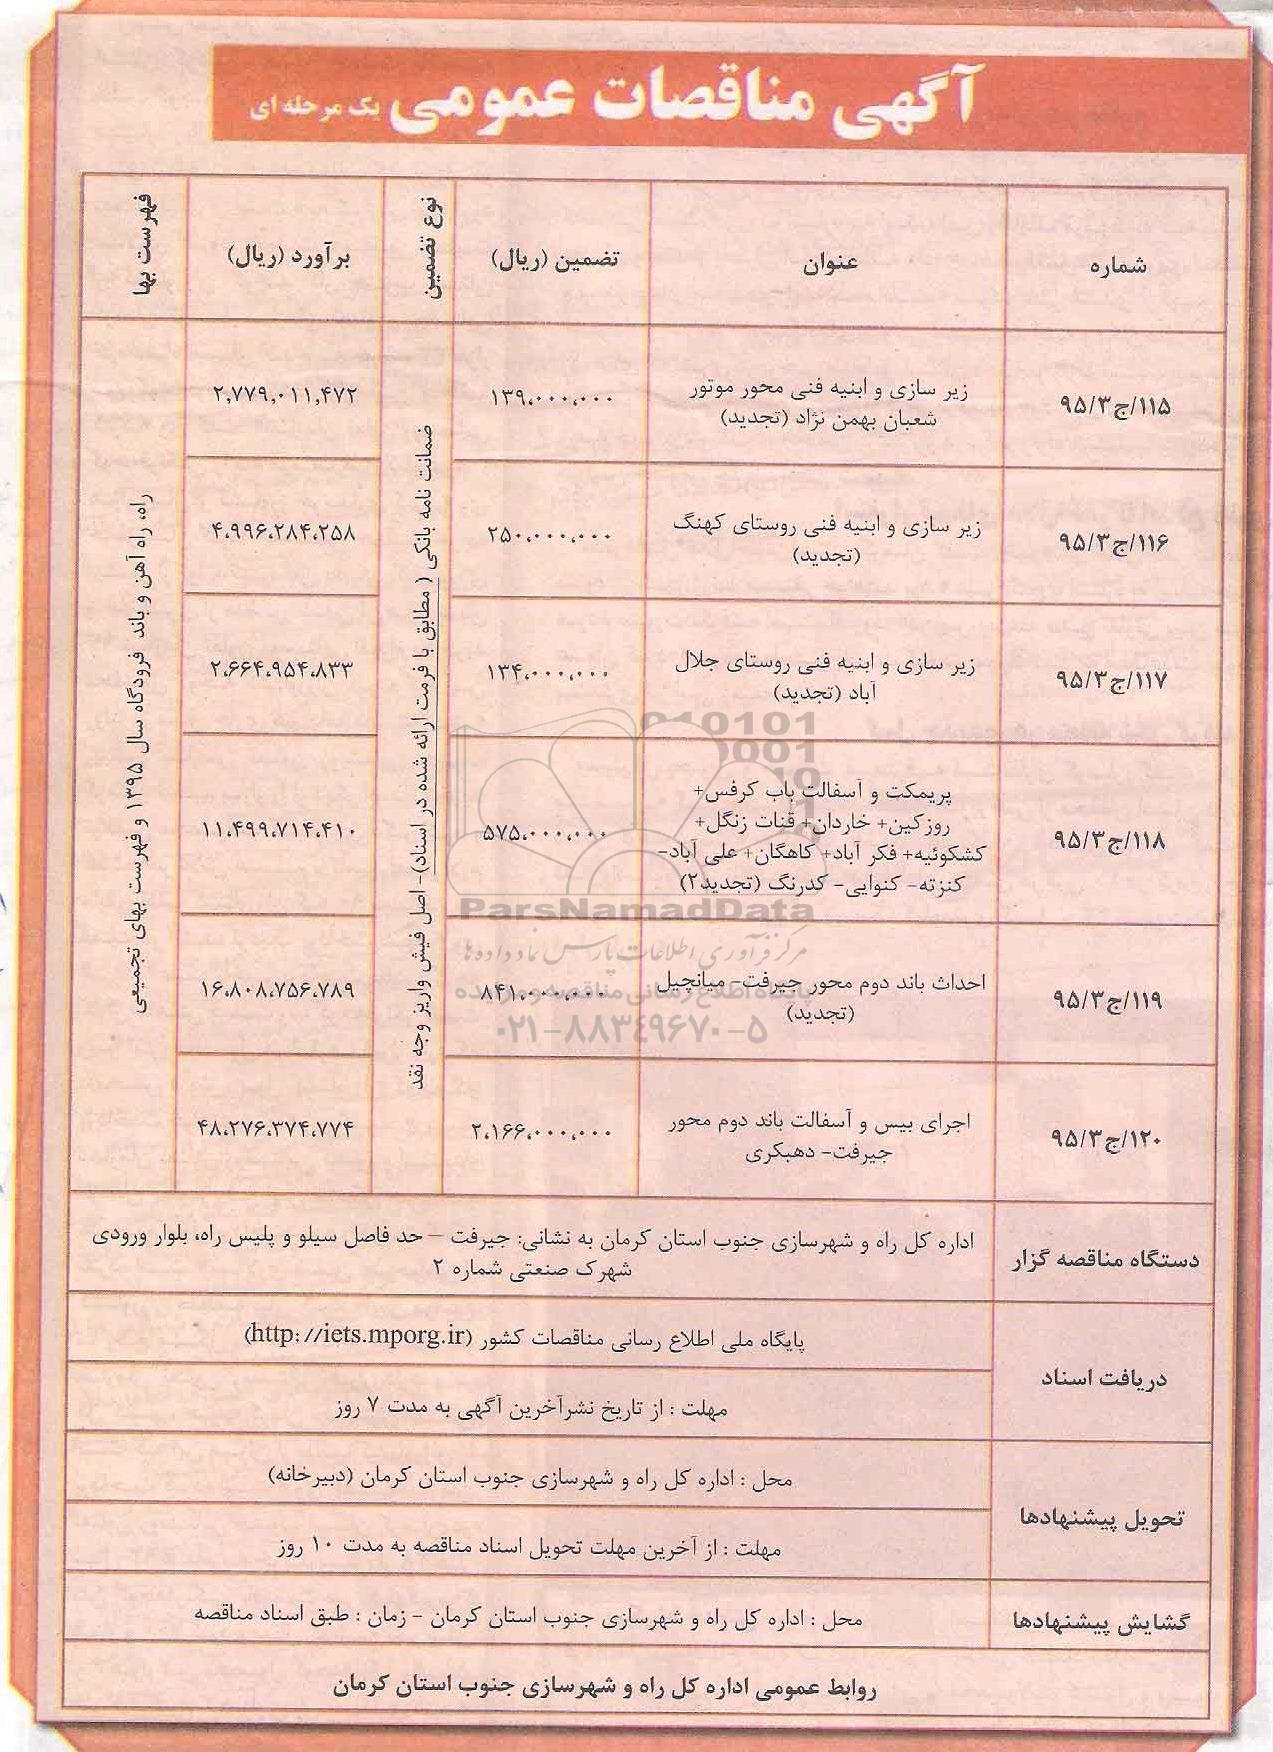 آگهی مناقصات عمومی یک مرحله ای
شماره
عنوان
تضمین (ریال)
نوع تضمین
برآورد (ریال)
فهرست بها
۱۱۵/ج۹۵/۳
زیر سازی و ابنیه فنی محور موتور
شعبان بهمن نژاد (تجدید)
۱۳۹،۰۰۰،۰۰۰
۲,۷۷۹,۰۱۱,۴۷۲
۱۱۶/ج۹۵/۳
زیر سازی و ابنیه فنی روستای کهنگ
(تجدید)
۲۵۰،۰۰۰،۰۰۰
۴،۹۹۶،۲۸۴،۲۵۸
۱۱۷/ج۹۵/۳
زیر سازی و ابنیه فنی روستای جلال
آباد (تجدید)
۱۳۴،۰۰۰،۰۰۰
۲،۶۶۴،۹۵۴،۸۳۳
۱۱۸/ج۹۵/۳
پریمکت و آسفالت باب کرفس+
روزکین+ خاردان+ قنات زنگل+
کشکوئیه+ فکر آباد+ کاهگان+ علی آباد-
کنزته- کنوایی- کدرنگ (تجدید۲)
۵۷۵،۰۰۰،۰۰۰
۱۱،۴۹۹،۷۱۴،۴۱۰
۱۱۹/ج۹۵/۳
احداث باند دوم محور جیرفت- میانچیل
(تجدید)
۸۴۱،۰۰۰،۰۰۰
۱۶،۸۰۸،۷۵۶،۷۸۹
۱۲۰/ج۹۵/۳
اجرای بیس و آسفالت باند دوم محور
جیرفت- دهبکری
۲،۱۶۶،۰۰۰،۰۰۰
۴۸،۲۷۶،۳۷۴،۷۷۴
ضمانت نامه بانکی ( مطابق با فرمت ارائه شده در اسناد)- اصل فیش واریز وجه نقد
راه، راه آهن و باند فرودگاه سال ۱۳۹۵ و فهرست بهای تجمیعی
ParsNamadData
مرکز فرآوری اطلاعات پارس نماد داده ها
پایگاه اطلاع رسانی مناقصه و مزایده
۰۲۱-۸۸۳۴۹۶۷۰-۵
دستگاه مناقصه گزار
اداره کل راه و شهرسازی جنوب استان کرمان به نشانی: جیرفت – حد فاصل سیلو و پلیس راه، بلوار ورودی
شهرک صنعتی شماره ۲
دریافت اسناد
پایگاه ملی اطلاع رسانی مناقصات کشور (http://iets.mporg.ir)
مهلت : از تاریخ نشرآخرین آگهی به مدت ۷ روز
تحویل پیشنهادها
محل : اداره کل راه و شهرسازی جنوب استان کرمان (دبیرخانه)
مهلت : از آخرین مهلت تحویل اسناد مناقصه به مدت ۱۰ روز
گشایش پیشنهادها
محل : اداره کل راه و شهرسازی جنوب استان کرمان - زمان : طبق اسناد مناقصه
روابط عمومی اداره کل راه و شهرسازی جنوب استان کرمان